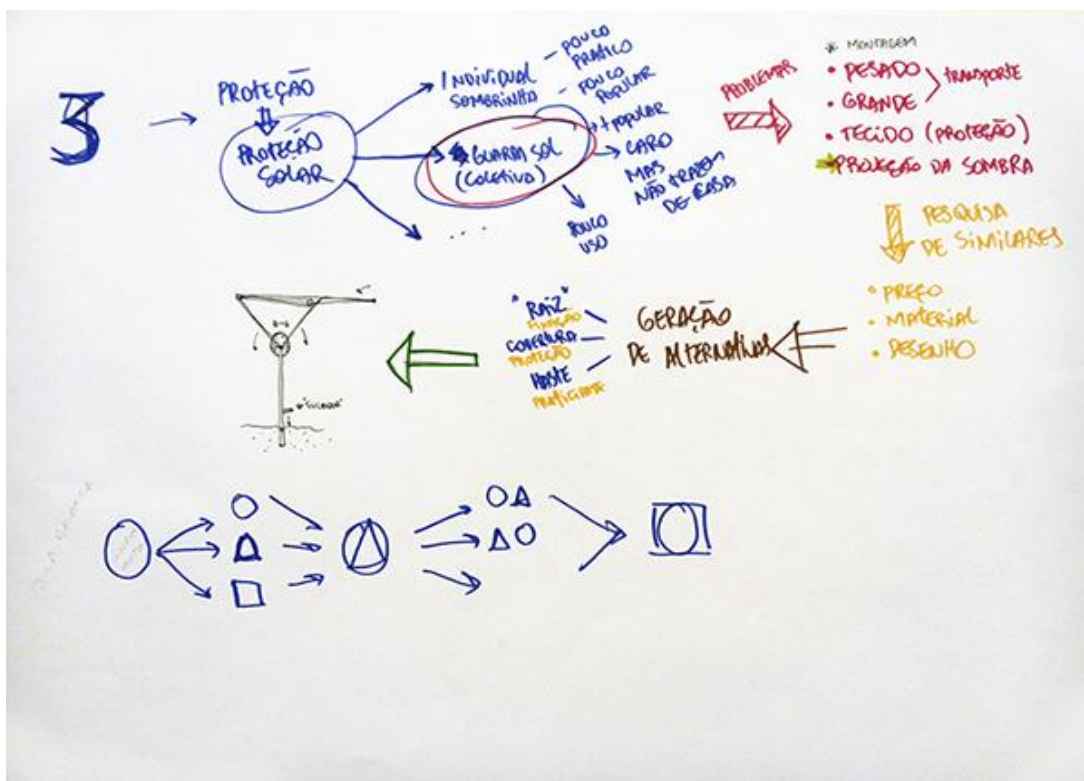 3
PROTEÇÃO
PROTEÇÃO
SOLAR
INDIVIDUAL
SOMBRINHA
- POUCO
PRÁTICO
- POUCO
POPULAR
GUARDA SOL
(COLETIVO)
+ POPULAR
CARO
MAS
NÃO TRAZEM
DE CASA
POUCO
USO
. . .
PROBLEMAS
* MONTAGEM
• PESADO
• GRANDE
TRANSPORTE
• TECIDO (PROTEÇÃO)
PROJEÇÃO DA SOMBRA
PESQUISA
DE SIMILARES
• PREÇO
• MATERIAL
• DESENHO
GERAÇÃO
DE ALTERNATIVAS
"RAIZ"
FIXAÇÃO
COBERTURA
PROTEÇÃO
HASTE